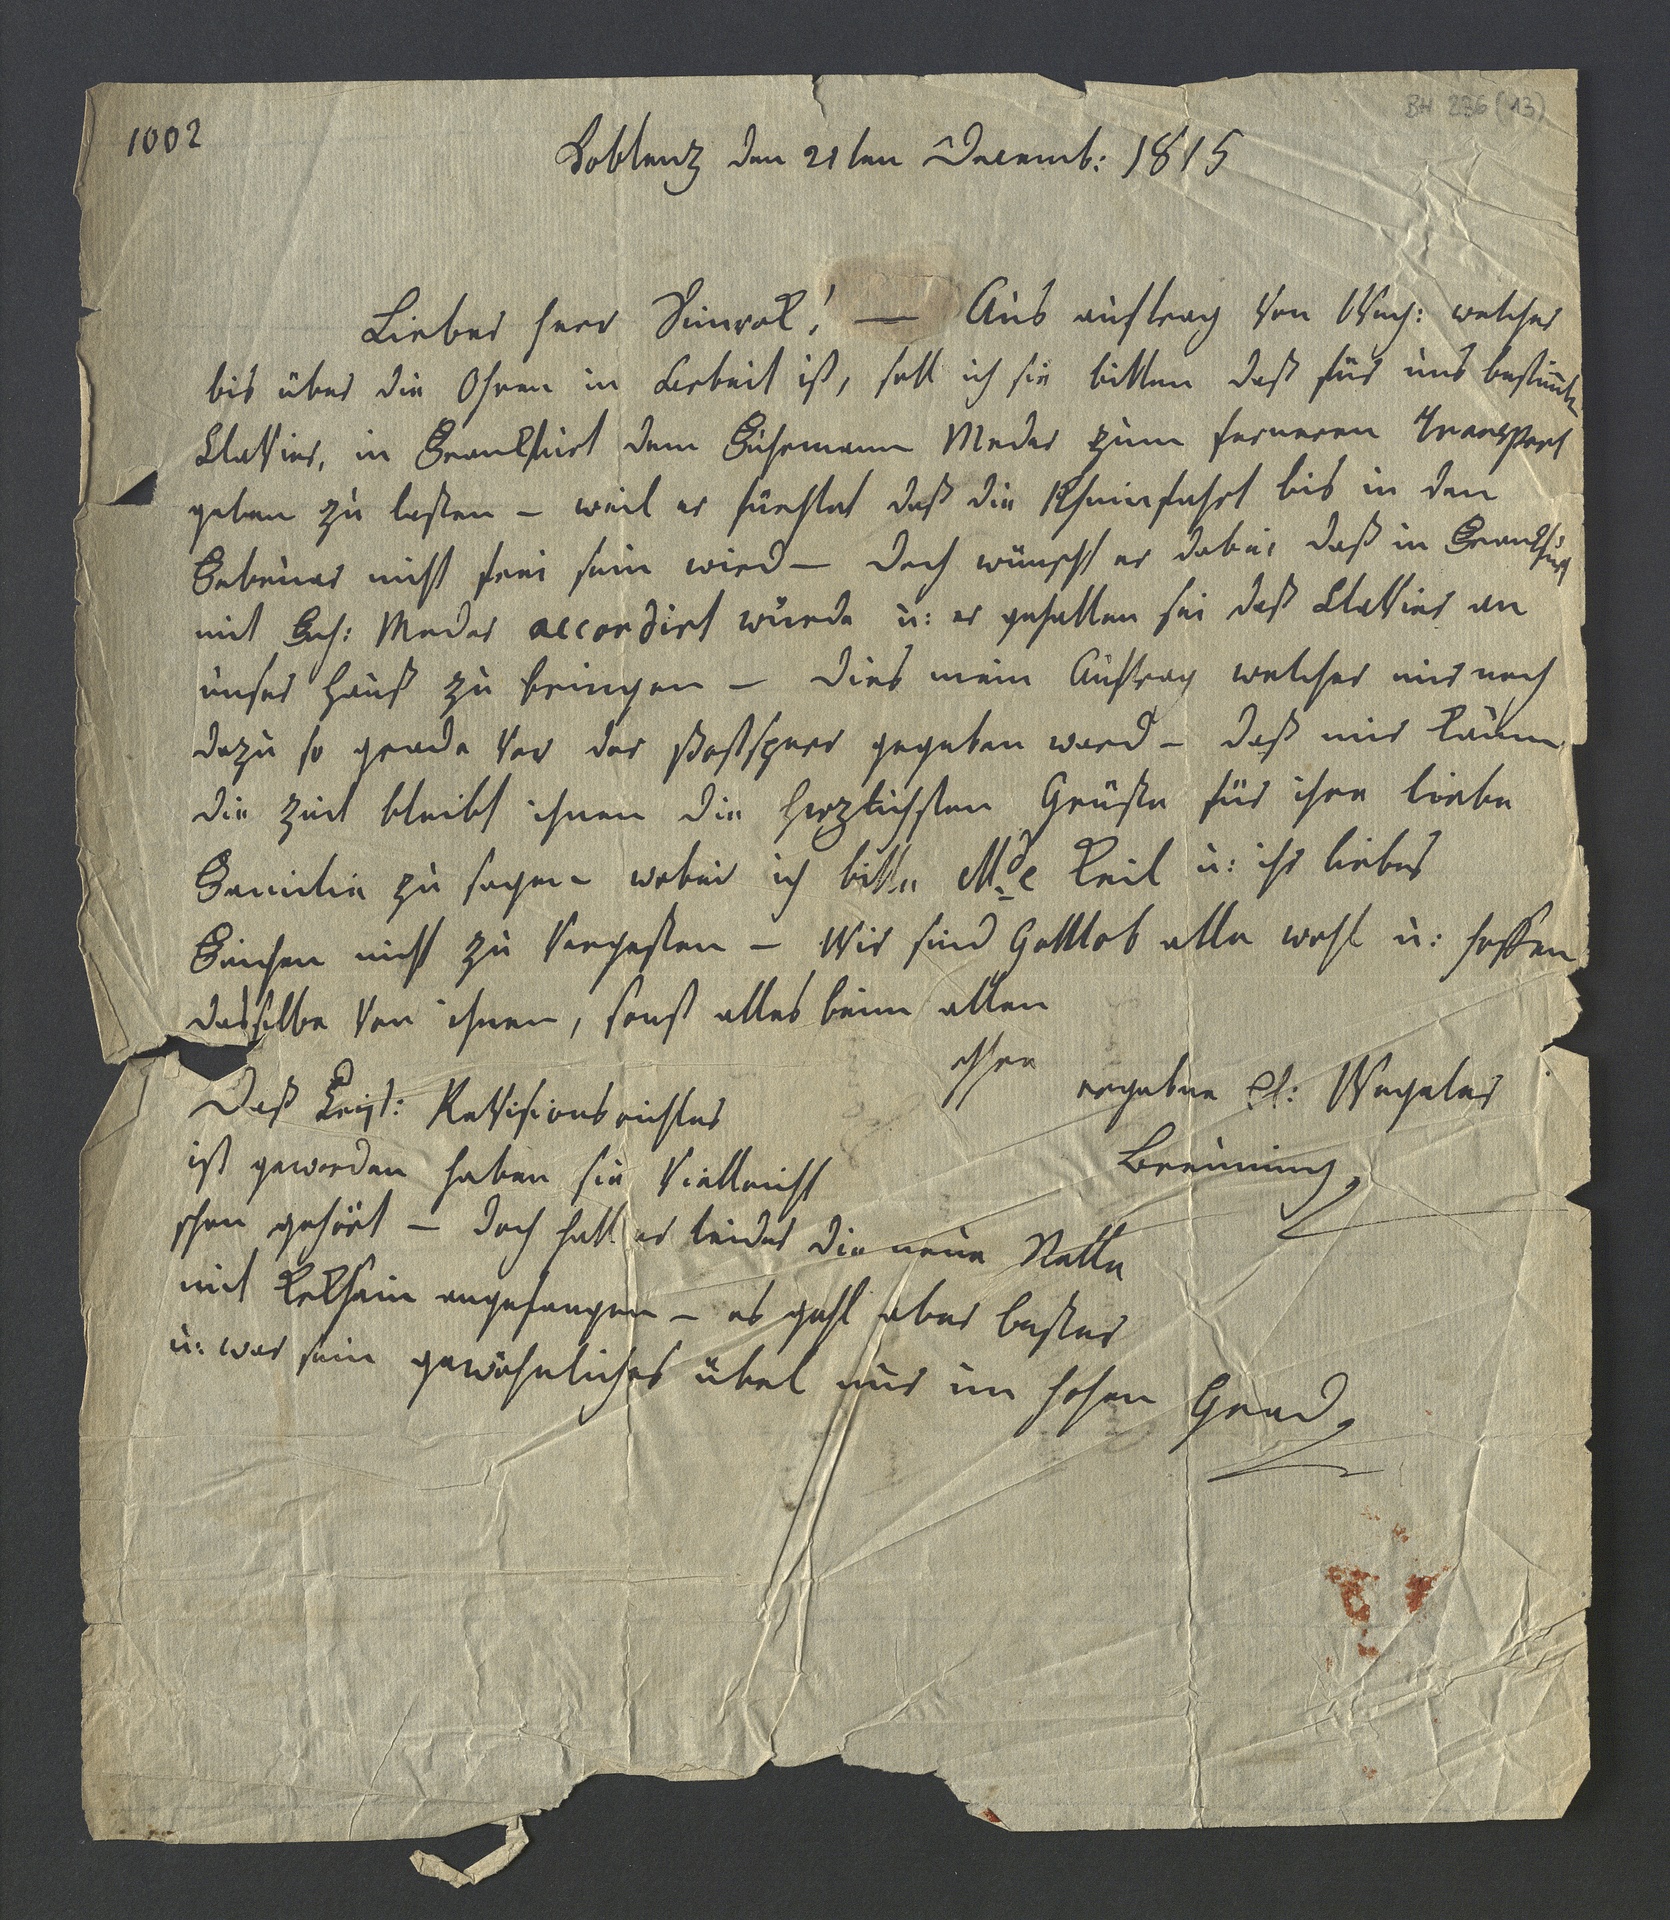 BH 236 (13)
1002
Coblenz den 21ten Decemb: 1815
Lieber Herr Simrok! — Aus auftrag von Weg: welcher
bis über die Ohren in Arbeit ist, soll ich sie bitten daß für uns bestimte
Clavier, in Frankfurt dem Fuhrmann Meder zum ferneren Transport
geben zu laßen – weil er fürchtet daß die Rheinfahrt bis in den
Februar nicht frei sein wird – doch wünscht er dabei daß in Frankfurt
mit Fuh: Meder accordirt würde u: er gehalten sei daß Clavier an
unser Hauß zu bringen – dies mein Auftrag welcher mir noch
dazu so gerade vor der Postsperr gegeben ward – daß mir kaum
die Zeit bleibt ihnen die herzlichsten Grüße für ihre liebe
Familie zu sagen – wobei ich bitte Mde Keil u: ihr liebes
Finchen nicht zu vergeßen – Wir sind Gottlob alle wohl u: hoffen
dasselbe von ihnen, sonst alles beim alten
ihre
ergebne el: Wegeler
Breuning
Daß Revisionsrichter
ist geworden haben sie vielleicht
schon gehört – doch hatt er leider die neue Stelle
mit angefangen – es geht aber beßer
u: war sein gewöhnliches übel nur im hohen Grad